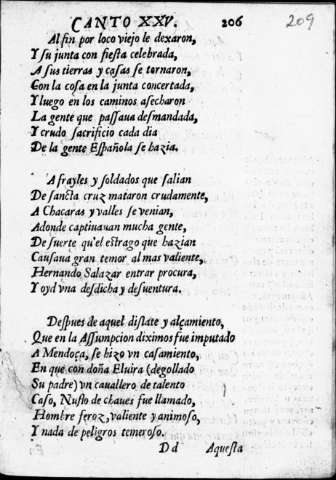 CANTO XXV. 206 209
Al fin por loco viejo le dexaron,
Y su junta con fiesta celebrada,
A sus tierras y casas se tornaron,
Con la cosa en la junta concertada,
Y luego en los caminos asecharon
La gente que passaua desmandada,
Y crudo sacrificio cada dia
De la gente Española se hazia.
A frayles y soldados que salian
De sancta cruz mataron crudamente,
A Chacaras y valles se venian,
Adonde captiuauan mucha gente,
De suerte qu'el estrago que hazian
Causaua gran temor al mas valiente,
Hernando Salazar entrar procura,
Y oyd vna desdicha y desuentura.
Despues de aquel dislate y alçamiento,
Que en la Assumpcion diximos fue imputado
A Mendoça, se hizo vn casamiento,
En que con doña Eluira (degollado
Su padre) vn cauallero de talento
Caso, Nuflo de chaues fue llamado,
Hombre feroz, valiente y animoso,
Y nada de peligros temeroso.
D d Aquesta